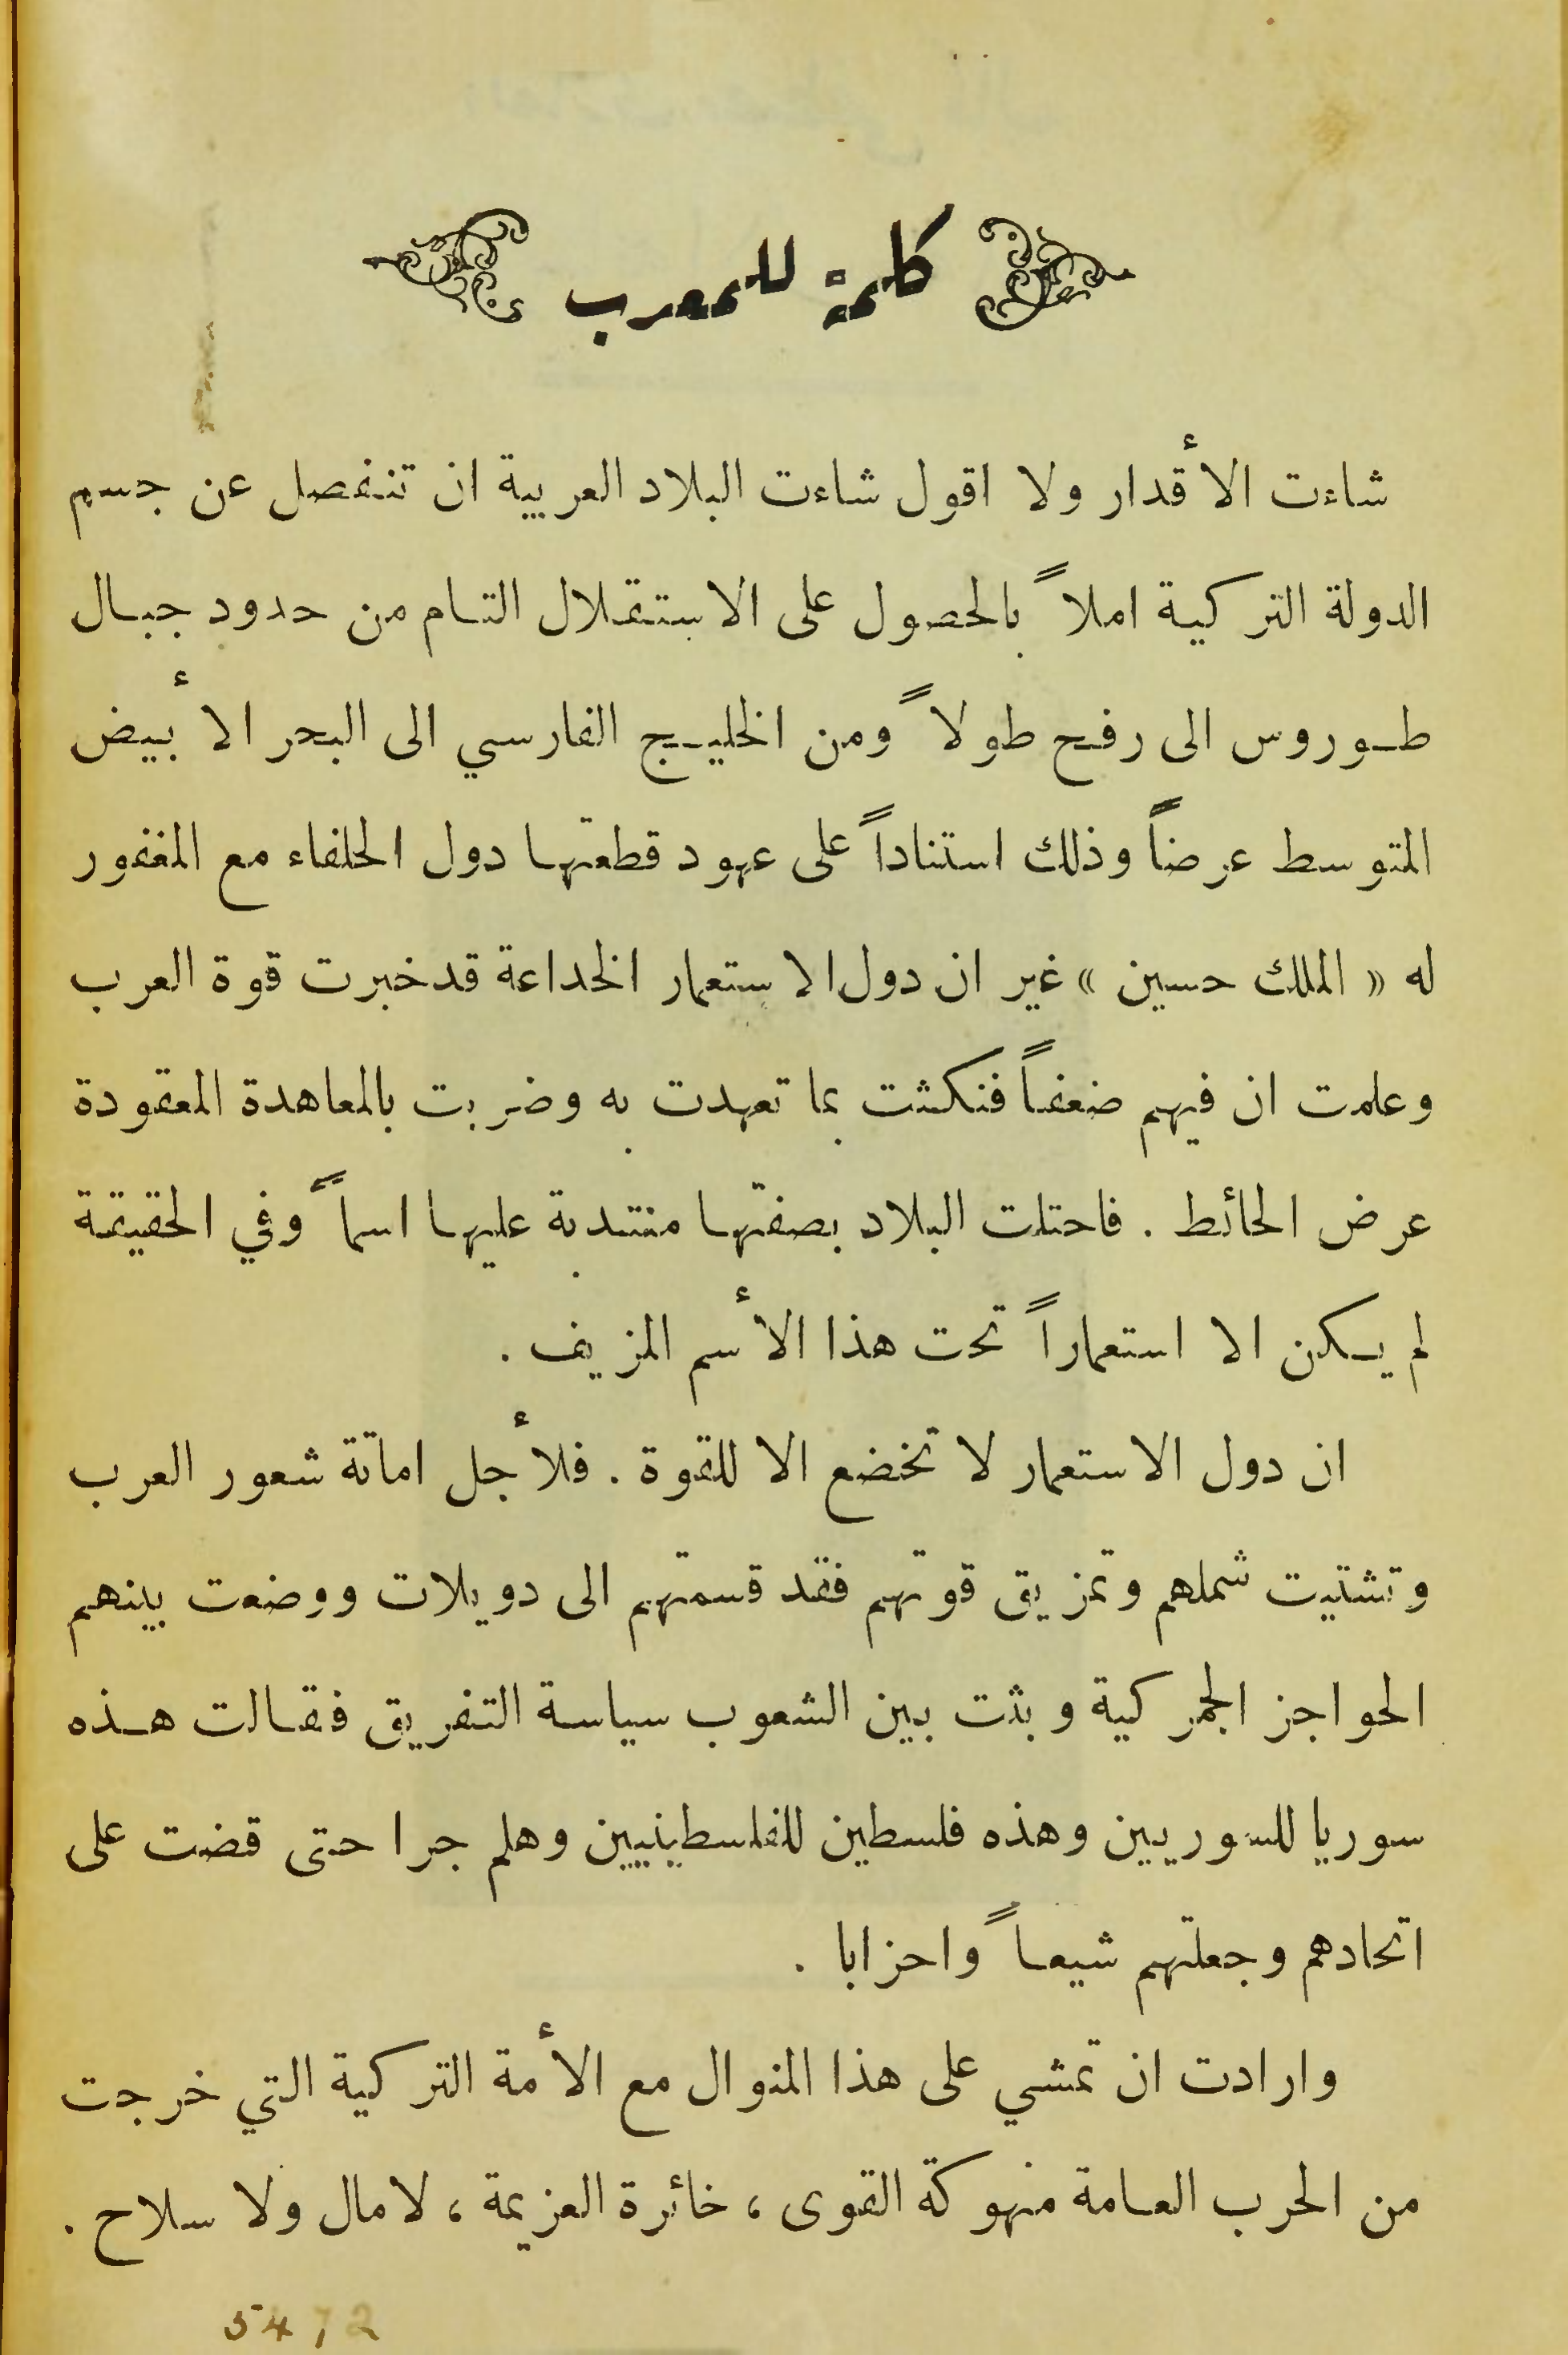 كلمة للمعرب
شاءت الأقدار ولا اقول شاءت البلاد العربية ان تنفصل عن جسم
الدولة التركية املاً بالحصول على الاستقلال التام من حدود جبال
طوروس الى رفح طولاً ومن الخليج الفارسي الى البحر الأبيض
المتوسط عرضاً وذلك استناداً على عهود قطعتها دول الحلفاء مع المغفور
له « الملك حسين » غير ان دول الاستعمار الخداعة قد خبرت قوة العرب
وعلمت ان فيهم ضعفاً فنكثت بما تعهدت به وضربت بالمعاهدة المعقودة
عرض الحائط . فاحتلت البلاد بصفتها منتدبة عليها اسماً وفي الحقيقة
لم يكن الا استعماراً تحت هذا الأسم المزيف .
ان دول الاستعمار لا تخضع الا للقوة . فلأجل اماتة شعور العرب
وتشتيت شملهم وتمزيق قوتهم فقد قسمتهم الى دويلات ووضعت بينهم
الحواجز الجمركية وبثت بين الشعوب سياسة التفريق فقالت هذه
سوريا للسوريين وهذه فلسطين للفلسطينيين وهلم جرا حتى قضت على
اتحادهم وجعلتهم شيعاً واحزابا .
وارادت ان تمشي على هذا المنوال مع الأمة التركية التي خرجت
من الحرب العامة منهوكة القوى ، خائرة العزيمة ، لا مال ولا سلاح .
5472